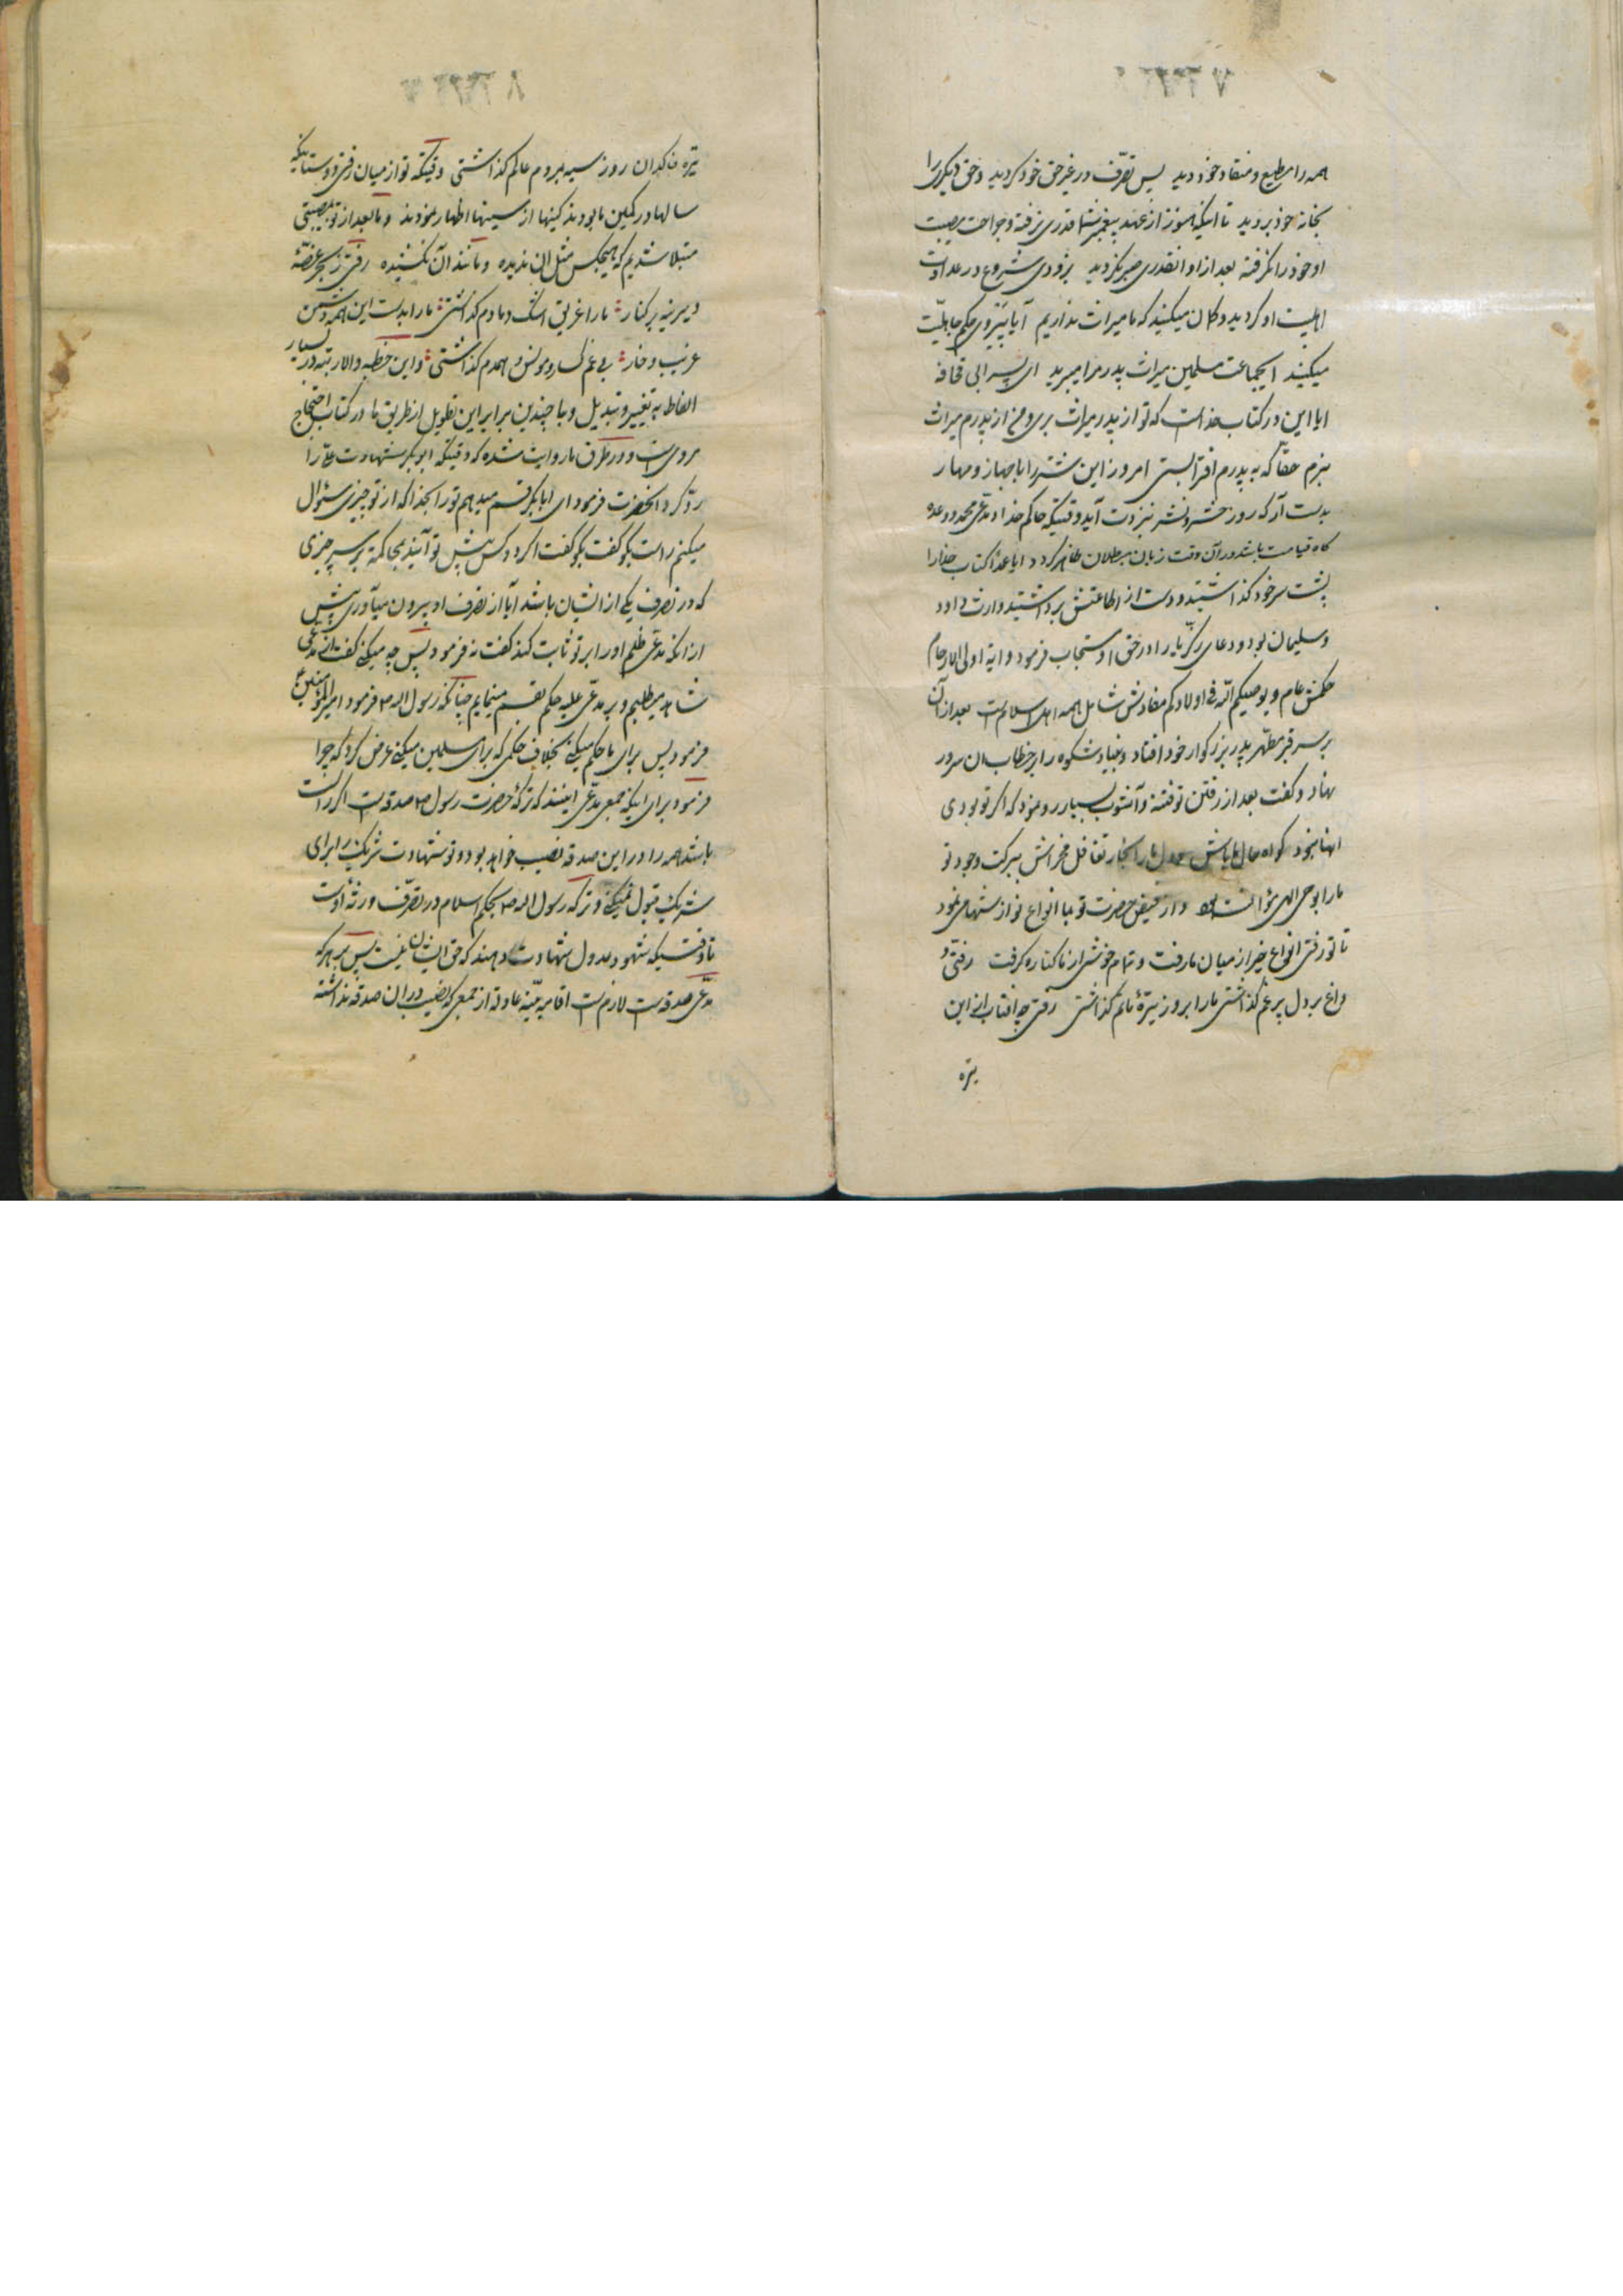 همه را مطیع و منقاد خود دید پس تصرّف در غیر حق خود کردید و حق دیگری را
بخانه خود بردید تا اینکه هنوز از عهد پیغمبر شما قدری نرفته و جراحت مصیبت
او خود را نگرفته بعد از او انقدری صبر نکردید بزودی شروع در عداوت
اهلبیت او کردید و کمان میکنید که ما میراث نداریم آیا پیروی حکم جاهلیّت
میکنید ایجماعت مسلمین میراث پدر مرا میبرید ای پسر ابی قحافه
ایا این در کتاب خداست که تو از پدر میراث بری و من از پدرم میراث
نبرم حقّا که به پدرم افترا بستی امروز این شتر را با جهاز و مهار
بدست آر که روز حشر و نشر نیز دت آید وقتیکه حاکم خدا و مدّعی محمد و وعده
کاه قیامت باشد در آن وقت زیان مبطلان ظاهر کردد ایا عمدا کتاب خدا را
پشت سر خود کذاشتید و دست از اطاعتش برداشتید وارث داود
و سلیمان بود و دعای زکریّا را در حق او مستجاب فرمود و ایه اولی الارحام
حکمش عام و یوصیکم اللّه فی اولادکم مفادش شامل همه اهل اسلام است بعد از آن
بر سر قبر مطهر پدر بزرکوار خود افتاد و بنیاد شکوه را بر خطاب ان سرور
نهاد و کفت بعد از رفتن تو فتنه و آشوب بسیار رو نمود که اکر تو بودی
اینها نبود کواه حال ما باش و دل ما را بخار تغافل مخراش ببرکت وجود تو
ما را بوحی الهی مؤانست بود و از فیض حضرت تو با انواع نوازشها می نمود
تا تو رفتی انواع خیر از میان ما رفت و تمام خوشی از ما کناره کرفت رفتی و
داغ بر دل پر غم کذاشتی ما را بروز تیرهٔ ماتم کذاشتی رفتی چه افتاب ازین
تیره
تیره خاکدان روز سیه بمردم عالم کذاشتی وقتیکه تو از میان رفتی دوستانیکه
سالها در کمین ما بودند کینها از سینها اظهار نمودند و ما بعد از تو بمصیبتی
مبتلا شدیم که هیچکس مثل ان ندیده و مانند آن نشنیده رفتی ز بحر غصّهٔ
دیرینه بر کنار ما را غریق اشک دمادم کذاشتی ما را بدست این همه دشمن
غریب و خار بی غم کسار و مونس و همدم کذاشتی و این خطبه والا رتبه در بسیار
الفاظ به تغییر و تبدیل و با چندین برابر این تطویل از طریق ما در کتاب احتجاج
مرویست و در طرق ما روایت شده که وقتیکه ابوبکر شهادت علی را
ردّ کرد انحضرت فرمود ای ابابکر قسم میدهم تو را بخدا که از تو چیزی سئوال
میکنم راست بکو کفت بکو کفت اکر دو کس پیش تو آیند بمحاکمهٔ بر سر چیزی
که در تصرف یکی از ایشان باشد ایا از تصرف او بیرون میآوری پیش
از انکه مدّعی ظلم او را بر تو ثابت کند کفت نه فرمود پس چه میکنی کفت از مدّعی
شاهد میطلبم و بر مدّعی علیه حکم بقسم مینمایم چنانکه رسول اله ص فرمود امیرالمؤمنین ع
فرمود پس برای ما حکم میکنی بخلاف حکمی که برای مسلمین میکنی عرض کرد که چرا
فرمود برای اینکه جمعی مدّعی اینند که ترکهٔ حضرت رسول ص صدقه است اکر راست
باشد همه را در این صدقه نصیب خواهد بود و تو شهادت شریک را برای
شریک قبول نمیکنی و ترکه رسول اله ص بحکم اسلام در تصرّف ورثهٔ اوست
تا وقتیکه شهود عدول شهادت دهند که حق ایشان نیست پس بر هر که
مدّعی صدقه است لازم است اقامه بیّنهٔ عادله از جمعی که نصیب در ان صدقه نداشته